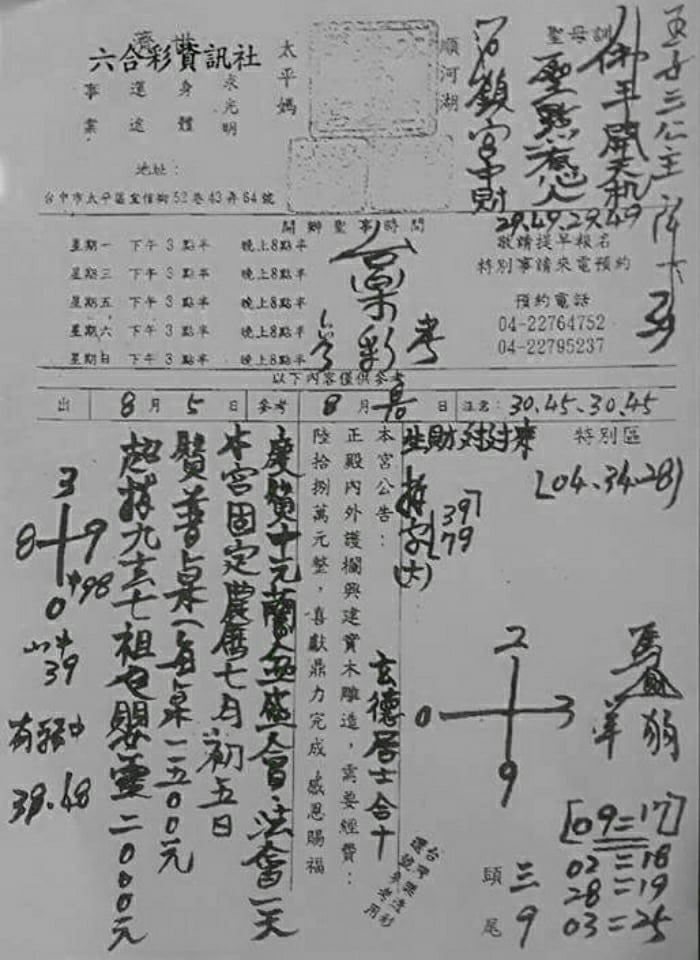 濟世
六合彩資訊社
求光明
身體
運途
事業
地址：
台中市太平區宜信街52巷43弄64號
太平媽
順河湖
聖母訓
玉子三公主
佛手開天机
聖點惑人
29.49.29.49
39
開辦聖事時間
星期一 下午 3 點半 晚上8點半
星期三 下午 3 點半 晚上8點半
星期五 下午 3 點半 晚上8點半
星期六 下午 3 點半 晚上8點半
星期日 下午 3 點半 晚上8點半
台
彩
考
敬請提早報名
特別事請來電預約
預約電話
04-22764752
04-22795237
以下內容僅供參考
出 8 月 5 日 參考 8 月 日 注意： 30.45-30.45
特別區
(04-34-28)
本宮公告：
正殿內外護欄興建實木雕造，需要經費：
陸拾捌萬元整，喜獻鼎力完成 感恩賜福
玄德居士合十
慶贊中元蘭盆盛會法會一天
本宮固定農曆七月初五日
贊普桌(每桌一五00元
超拔九玄七祖 嬰靈二000元
397
79
(六)
3
8 9
0
中98
39
39.68
2
0 3
9
馬
羊 狗
[09=17]
02=18
28=19
03=25
頭 三
尾 9